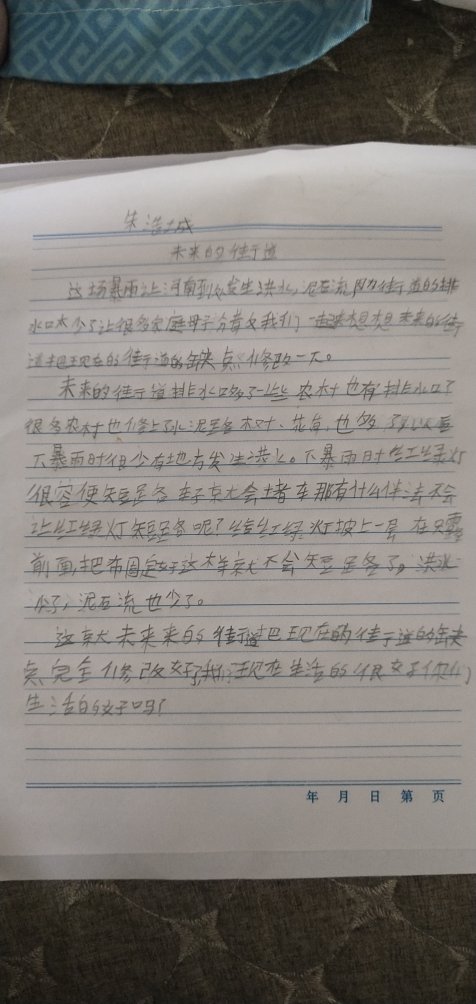 朱浩城
未来的街道
这场暴雨让河南到处发生洪水,泥石流,因为街道的排
水口太少了让很多家庭母子分离,我们一起来想想未来的街
道把现在的街道的缺点修改一下。
未来的街道排水口多了一些农村也有排水口了
很多农村也修上了水泥路树、花草,也多了以后
下暴雨时很少有地方发生洪水。下暴雨时红绿灯
很容使短路车子就会堵车那有什么伴法不会
让红绿灯短路呢?给红绿灯按上一层在
前面,把布固定好这样就不会短路了。洪水
少了,泥石流也少了。
这就未来来的街道把现在的街道的缺
点完全修改好了,我们现在生活的很好你们
生活的好吗?
年 月 日 第 页